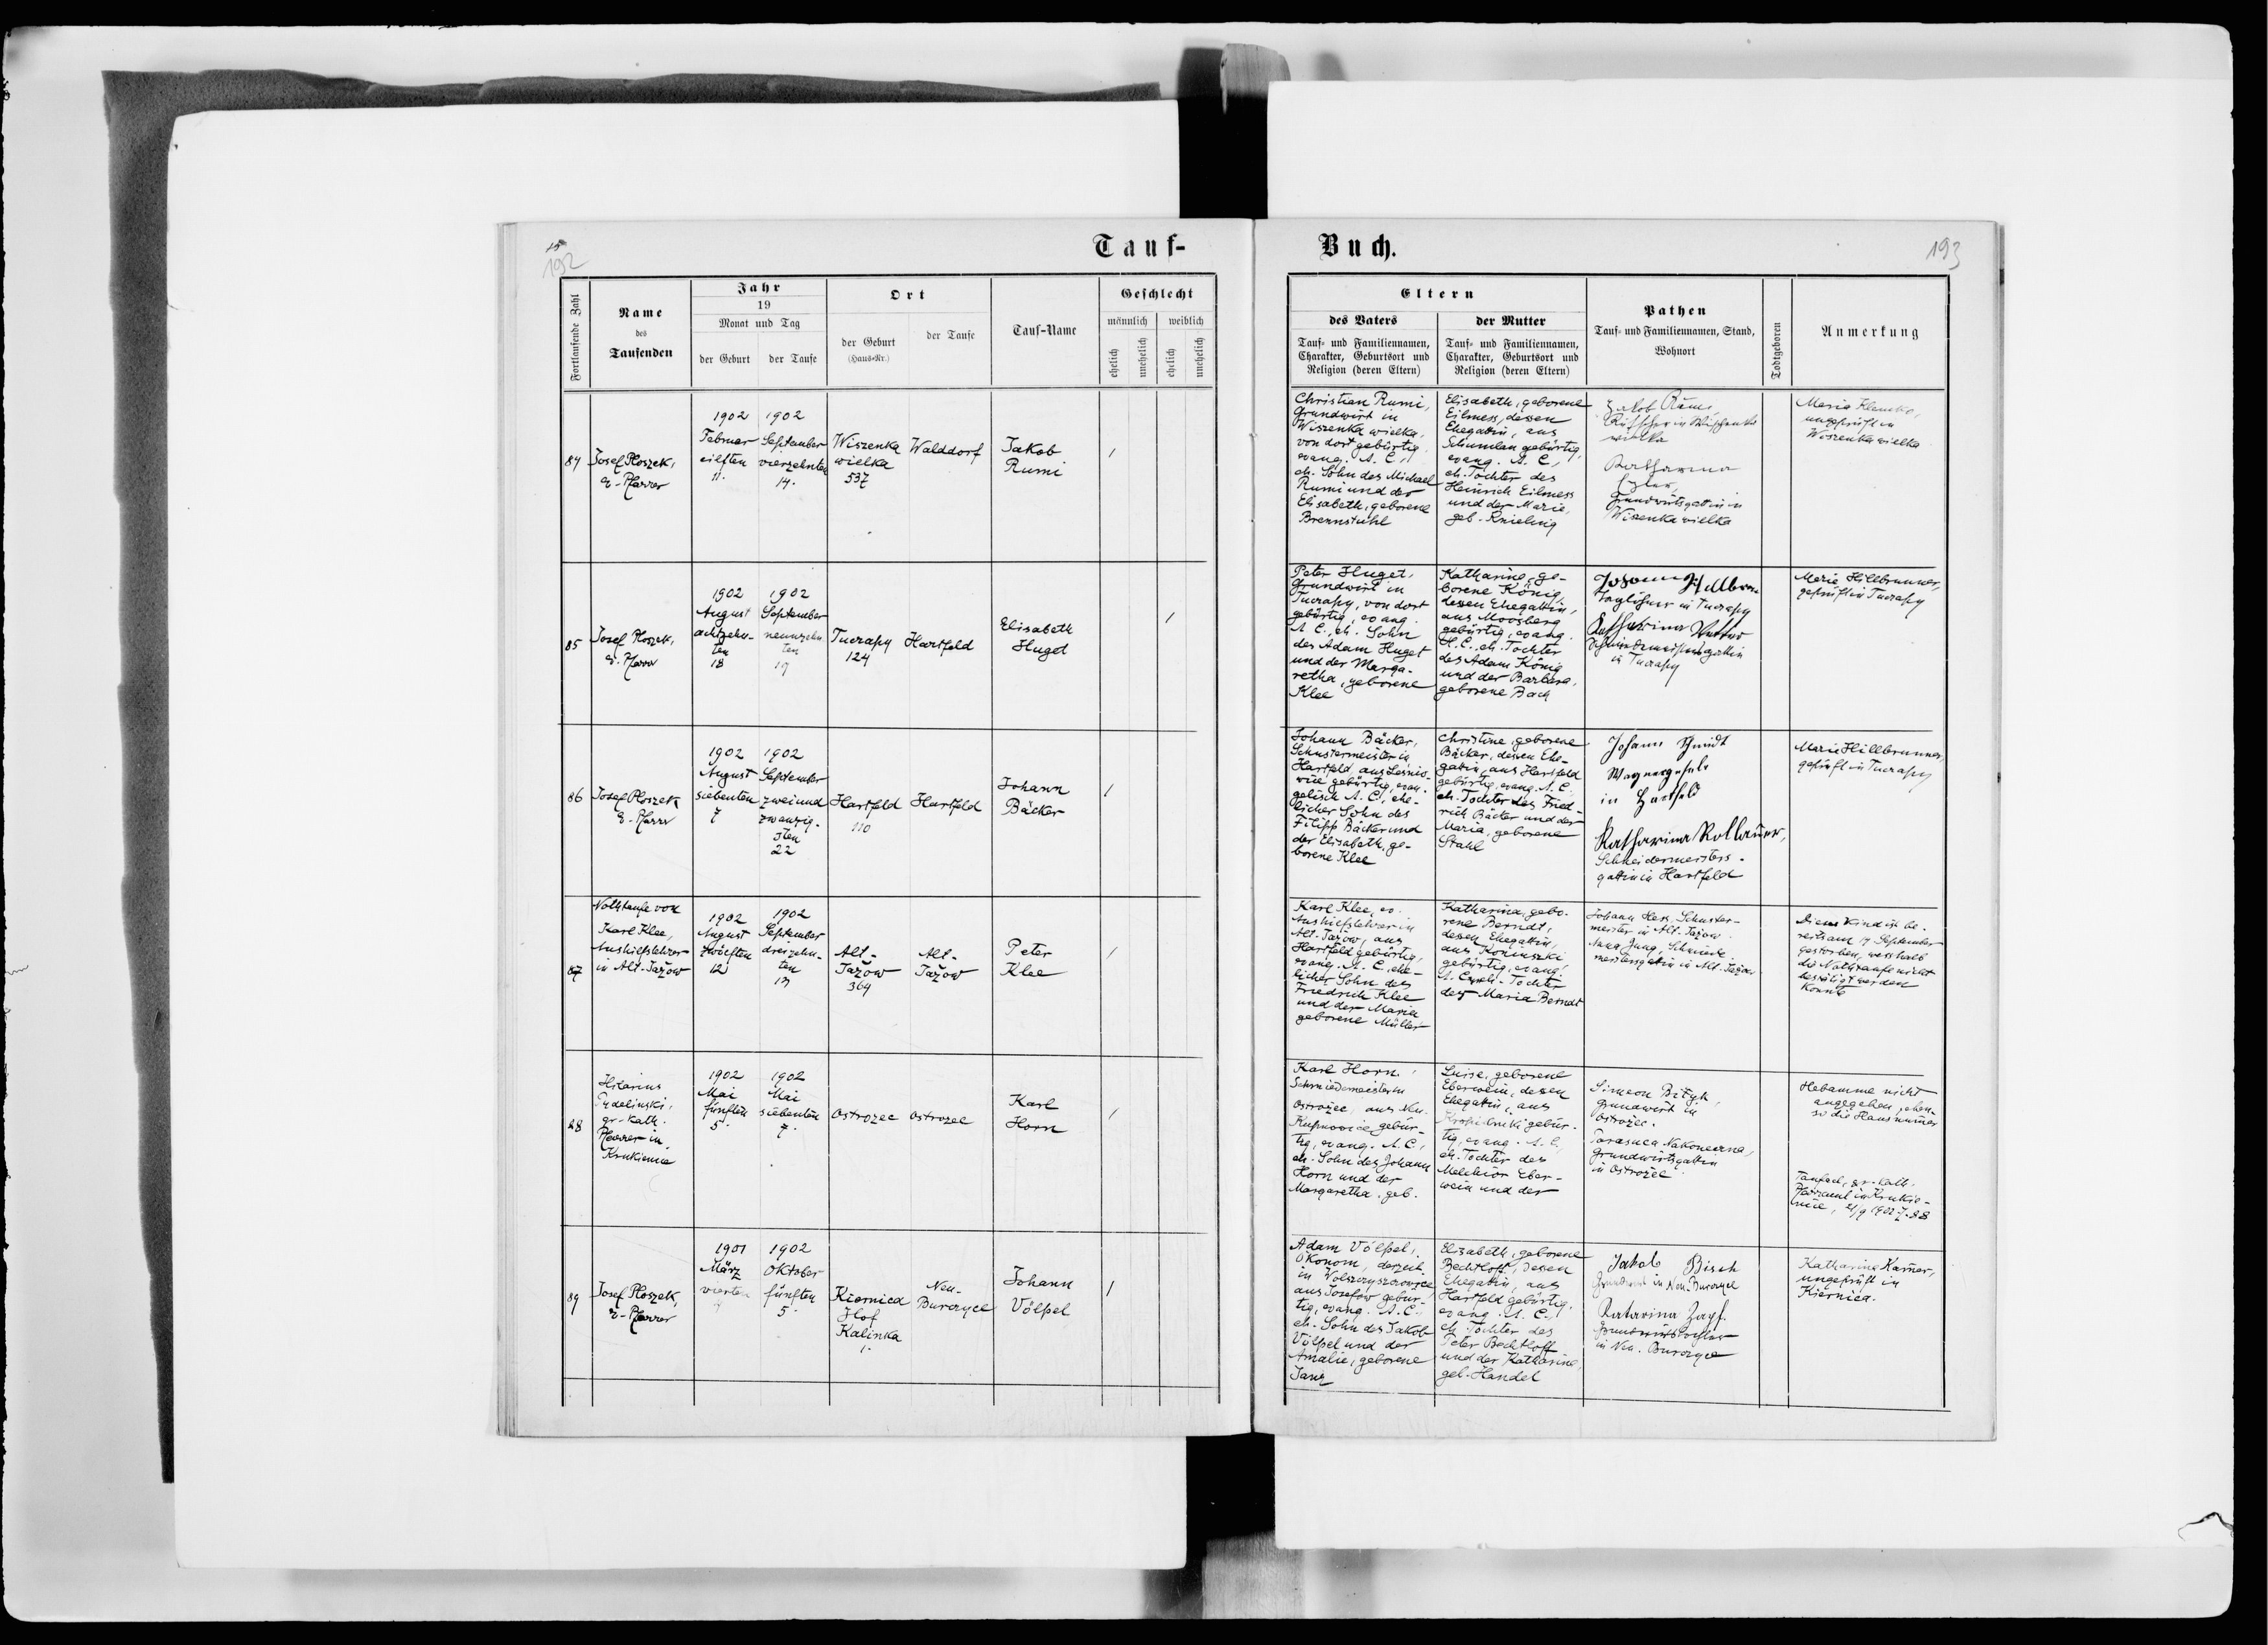 15
192
Tauf-
Fortlaufende Zahl
Name
des
Taufenden
Jahr
19
Monat und Tag
der Geburt
der Taufe
Ort
der Geburt
(Haus-Nr.)
der Taufe
Tauf-Name
Geschlecht
männlich
weiblich
ehelich
unehelich
ehelich
unehelich
84
Josef Ploszek,
e. Pfarrer
1902
Februar
eilften
11.
1902
September
vierzehnten
14.
Wiszenka
wielka
537
Walddorf
Jakob
Rumi
85
Josef Ploszek,
e. Pfarrer
1902
August
achtzehn-
ten
18
1902
September
neunzehn
ten
19
Tuczapy
124
Hartfeld
Elisabeth
Huget
86
Josef Ploszek
e. Pfarrer
1902
August
siebenten
7
1902
September
zweiund
zwanzig-
sten
22
Hartfeld
110
Hartfeld
Johann
Bäcker
87
Nothtaufe von
Karl Klee,
Aushilfslehrer
in Alt-Jažow
1902
August
zwölften
12
1902
September
dreizehn-
ten
13
Alt-
Jažow
364
Alt-
Jažow
Peter
Klee
88
Hilarius
gr-kath.
Pfarrer in
Krukienice
1902
Mai
fünften
5.
1902
Mai
siebenten
7.
Ostrozec
Ostrozec
Karl
Horn
89
Josef Ploszek,
e. Pfarrer
1901
März
vierten
1902
Oktober
fünften
5.
Kiernica
Hof
Kalinka
1.
Neu-
Burczyce
Johann
Völpel
Buch.
193
Eltern
des Vaters
Tauf- und Familiennamen,
Charakter, Geburtsort und
Religion (deren Eltern)
der Mutter
Tauf- und Familiennamen,
Charakter, Geburtsort und
Religion (deren Eltern)
Pathen
Tauf- und Familiennamen, Stand,
Wohnort
Todtgeboren
Anmerkung
Christian Rumi,
Grundwirt in
Wiszenka wielka,
von dort gebürtig
evang. A. C.,
eh. Sohn des Michael
Rumi und der
Elisabeth, geborene
Brennstuhl
Elisabeth, geborene
Eilmess, dessen
Ehegattin, aus
Schumlau gebürtig,
evang. A. C.,
eh. Tochter des
Heinrich Eilmess
und der Marie,
geb. Knieling
Jakob Rumi,
wielka
Katharina
Grundwirtsgattin in
Wiszenka wielka
Maria Klemko,
ungeprüft in
Wiszenka wielka
Peter Huget,
Grundwirt in
Tuczapy, von dort
gebürtig, evang.
A. C., eh. Sohn
des Adam Huget
und der Marga-
retha, geborene
Klee
Katharine, ge-
borene König,
dessen Ehegattin,
aus Moosberg
gebürtig, evang.
A. C., eh. Tochter
des Adam König
und der Barbara,
geborene Bach
Taglöhner in Tuczapy
Katharina Vetter
Schmiedemeistersgattin
in Tuczapy
Marie Hillbrunner,
geprüft in Tuczapy
Johann Bäcker,
Schustermeister in
Hartfeld, aus Lesnio-
wice gebürtig, evan-
gelisch A. C., ehe-
licher Sohn des
Filipp Bäcker und
der Elisabeth, ge-
borene Klee
Christine, geborene
Bäcker, dessen Ehe-
gattin, aus Hartfeld
gebürtig, evang. A. C.
eh. Tochter des Fried-
rich Bäcker und der
Maria, geborene
Stahl
Johann Schmidt
Wagnergeselle
in Hartfeld
Katharina Rollauer,
Schneidermeisters-
gattin in Hartfeld
Marie Hillbrunner,
geprüft in Tuczapy
Karl Klee, ev.
Aushilfslehrer in
Alt-Jažow, aus
Hartfeld gebürtig,
evang. A. C., ehe-
licher Sohn des
Friedrich Klee
und der Maria
geborene Müller
Katharina, gebo-
rene Berndt,
dessen Ehegattin,
aus Koniuszki
gebürtig, evang.
A. C., eh. Tochter
der Maria Berndt
Johann Hess, Schuster-
meister in Alt-Jažow.
Anna Jung, Schmiede-
meistersgattin in Alt-Jažow
Dieses Kind ist be-
reits am 17 September
gestorben, weshalb
die Nothtaufe nicht
bestätigt werden
konnte
Karl Horn,
Schmiedemeister in
Ostrožec, aus Neu-
Kupnowice gebür-
tig, evang. A. C.,
eh. Sohn des Johann
Horn und der
Margaretha, geb.
Luise, geborene
Eberwein, dessen
Ehegattin, aus
gebür-
tig, evang. A. C.
eh. Tochter des
Melchior Eber-
wein und der
Simeon Bityk,
Grundwirt in
Ostrožec.
Parasuea Nakoneczna,
Grundwirtsgattin
in Ostrožec
Hebamme nicht
angegeben, eben-
so die Hausnummer
Taufsch. gr.-kath.
Pfarramt in Krukie-
nice, 21/9 1902 Z. 88
Adam Völpel,
Ökonom, derzeit
in Wolszczyszczowice,
aus Josefow gebür-
tig, evang. A. C.,
eh. Sohn des Jakob
Völpel und der
Amalie, geborene
Janz
Elisabeth, geborene
Bechtloff, dessen
Ehegattin, aus
Hartfeld gebürtig,
evang. A. C.,
eh. Tochter des
Peter Bechtloff
und der Katharine,
geb. Handel
Jakob Bisch
Grundwirt in Neu-Burczyce
Katarina Zapf.
Grundwirtstochter
in Neu-Burczyce
Katharine Karner,
ungeprüft in
Kiernica.